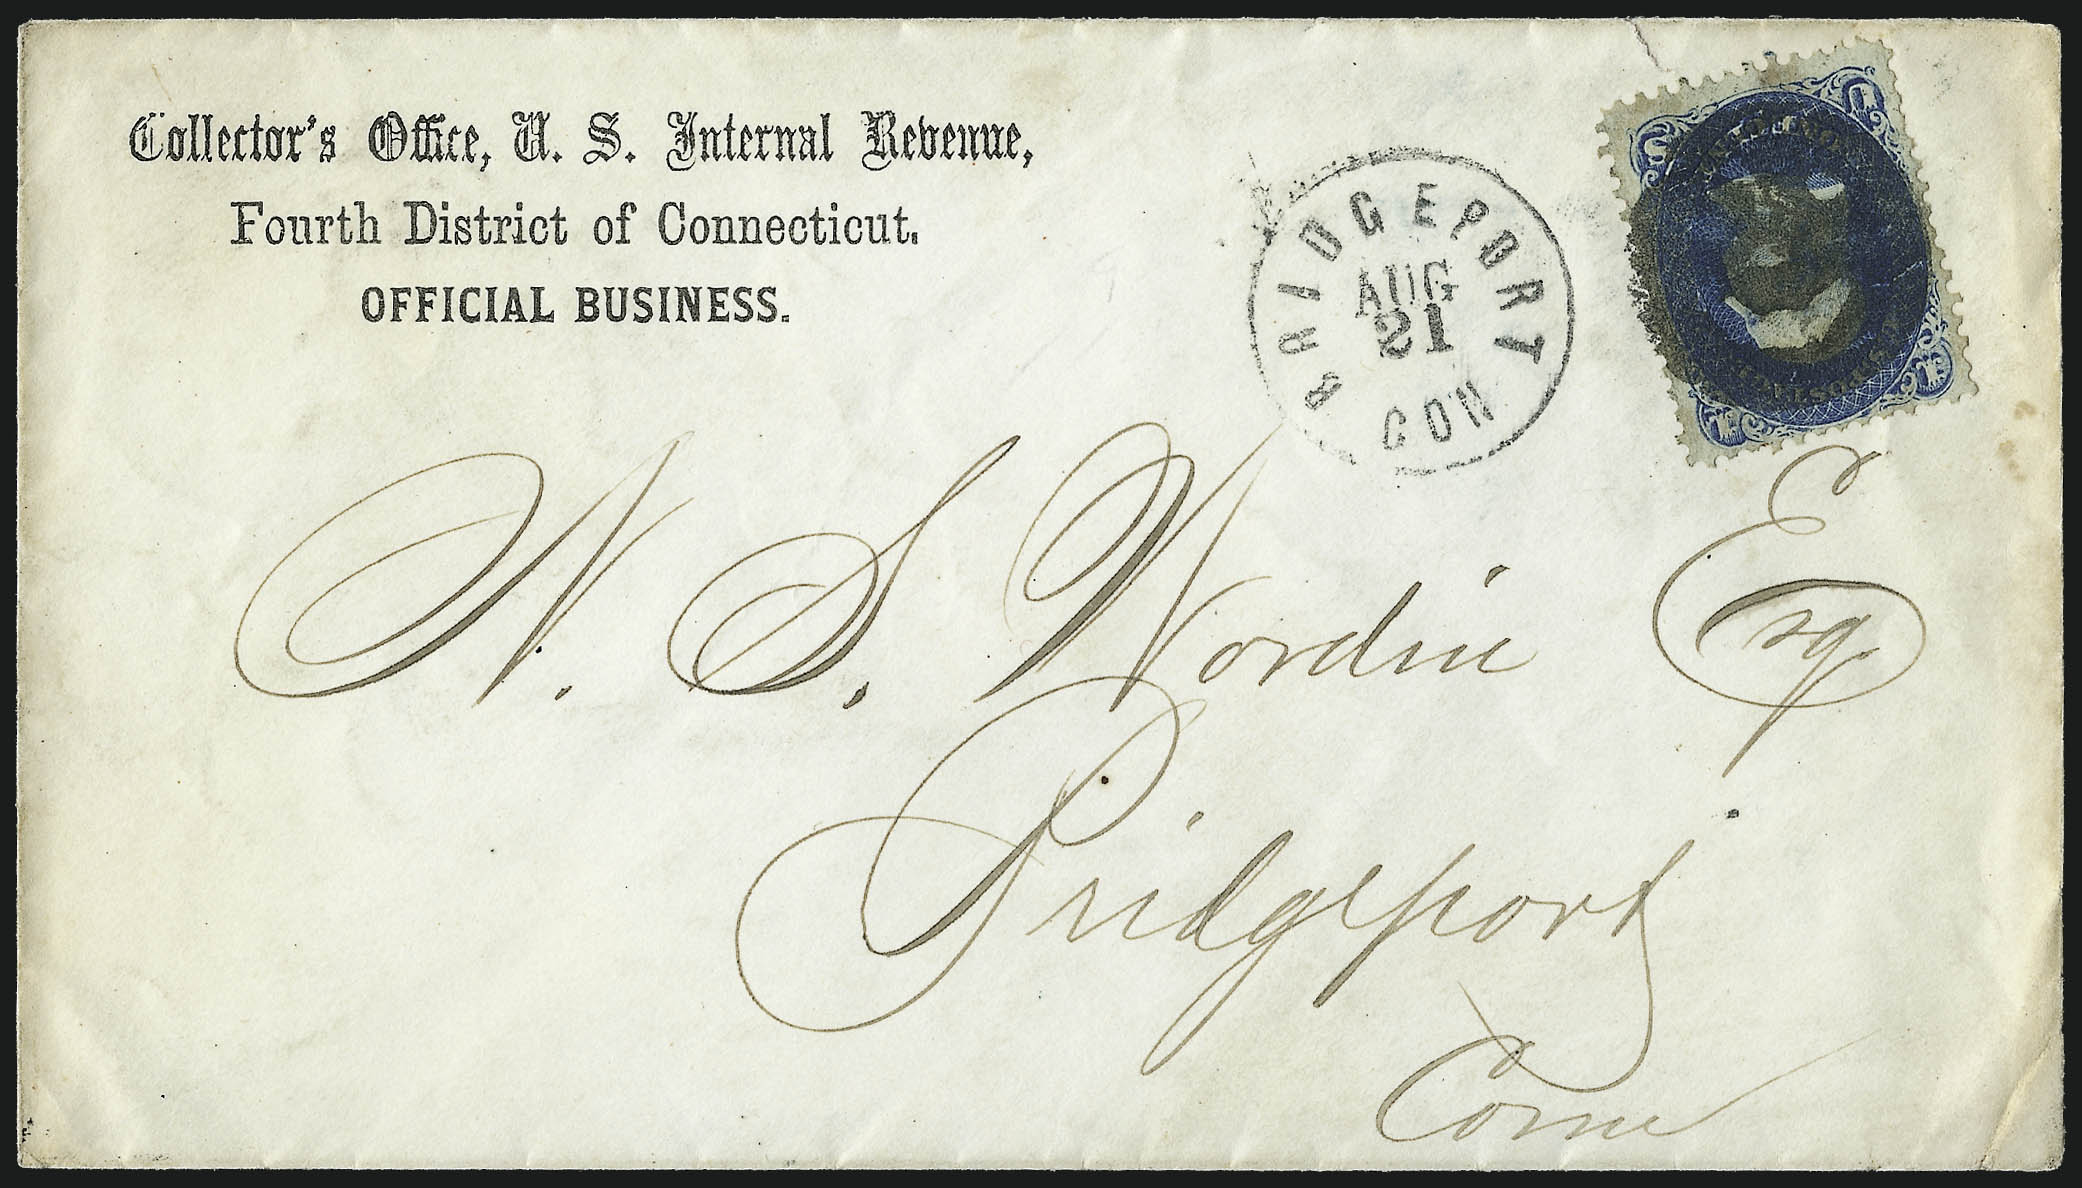 Collector's Office, U. S. Internal Revenue,
Fourth District of Connecticut.
OFFICIAL BUSINESS.
BRIDGEPORT
AUG
21
CON
N. S. Wordin Esq.
Bridgeport
Conn